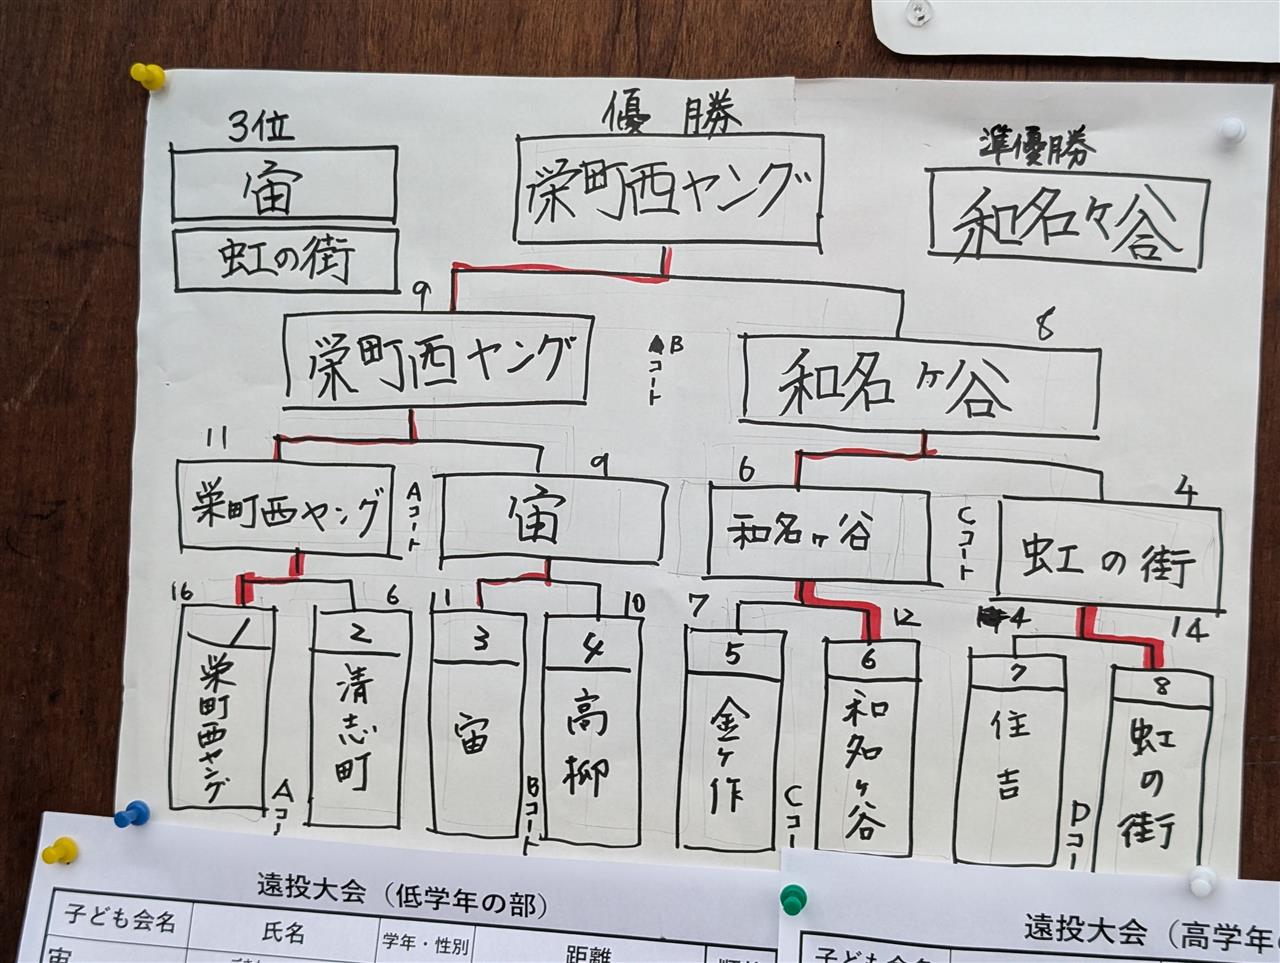 3位
優勝
準優勝
宙
虹の街
栄町西ヤング
和名ヶ谷
9
8
栄町西ヤング
Bコート
和名ヶ谷
11
9
6
4
栄町西ヤング
Aコート
宙
和名ヶ谷
Cコート
虹の街
16
6
11
10
7
12
4
14
1
2
3
4
5
6
7
8
栄町西ヤング
清志町
宙
高柳
金ヶ作
和名ヶ谷
住吉
虹の街
Aコー
Bコート
Cコー
Dコー
遠投大会（低学年の部）
子ども会名
氏名
学年・性別
距離
宙
遠投大会（高学年
子ども会名